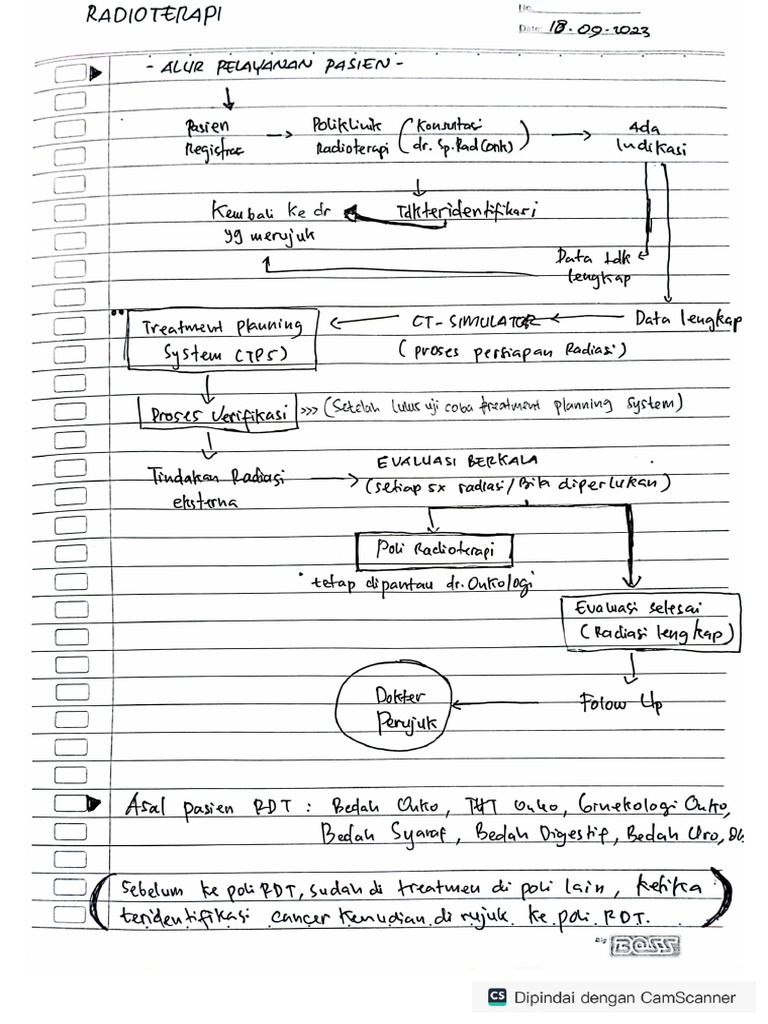 RADIOTERAPI
No.
Date: 18.09.2023
- ALUR PELAYANAN PASIEN -
Pasien Registrasi
Poliklinik Radioterapi
(Konsultasi dr. Sp.Rad (Onk))
Ada Indikasi
Kembali ke dr
Tdkteridentifikasi
yg merujuk
Data tdk
lengkap
Treatment planning
CT-SIMULATOR
Data lengkap
System (TPS)
(proses persiapan Radiasi)
Proses Verifikasi >>> (Setelah lulus uji coba treatment planning system)
EVALUASI BERKALA
Tindakan Radiasi
(setiap 5x radiasi/Bila diperlukan)
eksterna
Poli Radioterapi
tetap dipantau dr. Onkologi
Evaluasi selesai
(Radiasi lengkap)
Dokter
Folow Up
Perujuk
Asal pasien RDT : Bedah Onko, THT Onko, Ginekologi Onko,
Bedah Syaraf, Bedah Digestif, Bedah Uro, dll.
(Sebelum ke poli RDT, sudah di treatmen di poli lain, ketika
teridentifikasi cancer kemudian di rujuk ke poli RDT.)
BOSS
CS Dipindai dengan CamScanner